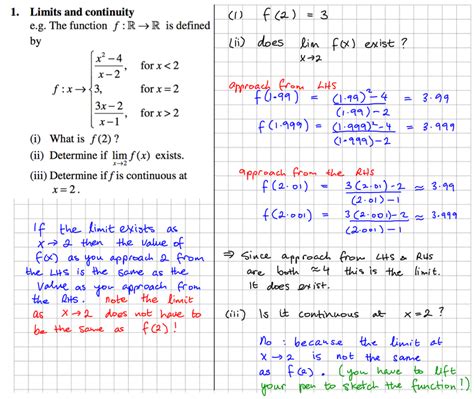 1. Limits and continuity
e.g. The function f : ℝ → ℝ is defined
by
f : x → { (x² – 4)/(x – 2), for x < 2
3, for x = 2
(3x – 2)/(x – 1), for x > 2
(i) What is f(2) ?
(ii) Determine if lim x→2 f(x) exists.
(iii) Determine if f is continuous at
x = 2.
If the limit exists as
x → 2 then the value of
f(x) as you approach 2 from
the LHS is the same as the
value as you approach from
the RHS. note the limit
as x → 2 does not have to
be the same as f(2) !
(i) f(2) = 3
(ii) does lim x→2 f(x) exist ?
approach from LHS
f(1.99) = ((1.99)² – 4)/((1.99) – 2) = 3.99
f(1.999) = ((1.999)² – 4)/((1.999) – 2) = 3.999
approach from the RHS
f(2.01) = (3(2.01) – 2)/((2.01) – 1) ≈ 3.99
f(2.001) = (3(2.001) – 2)/((2.001) – 1) ≈ 3.999
⇒ Since approach from LHS & RHS
are both ≈ 4 this is the limit.
It does exist.
(iii) Is it continuous at x = 2 ?
No : because the limit at
x → 2 is not the same
as f(2). (you have to lift
your pen to sketch the function !)